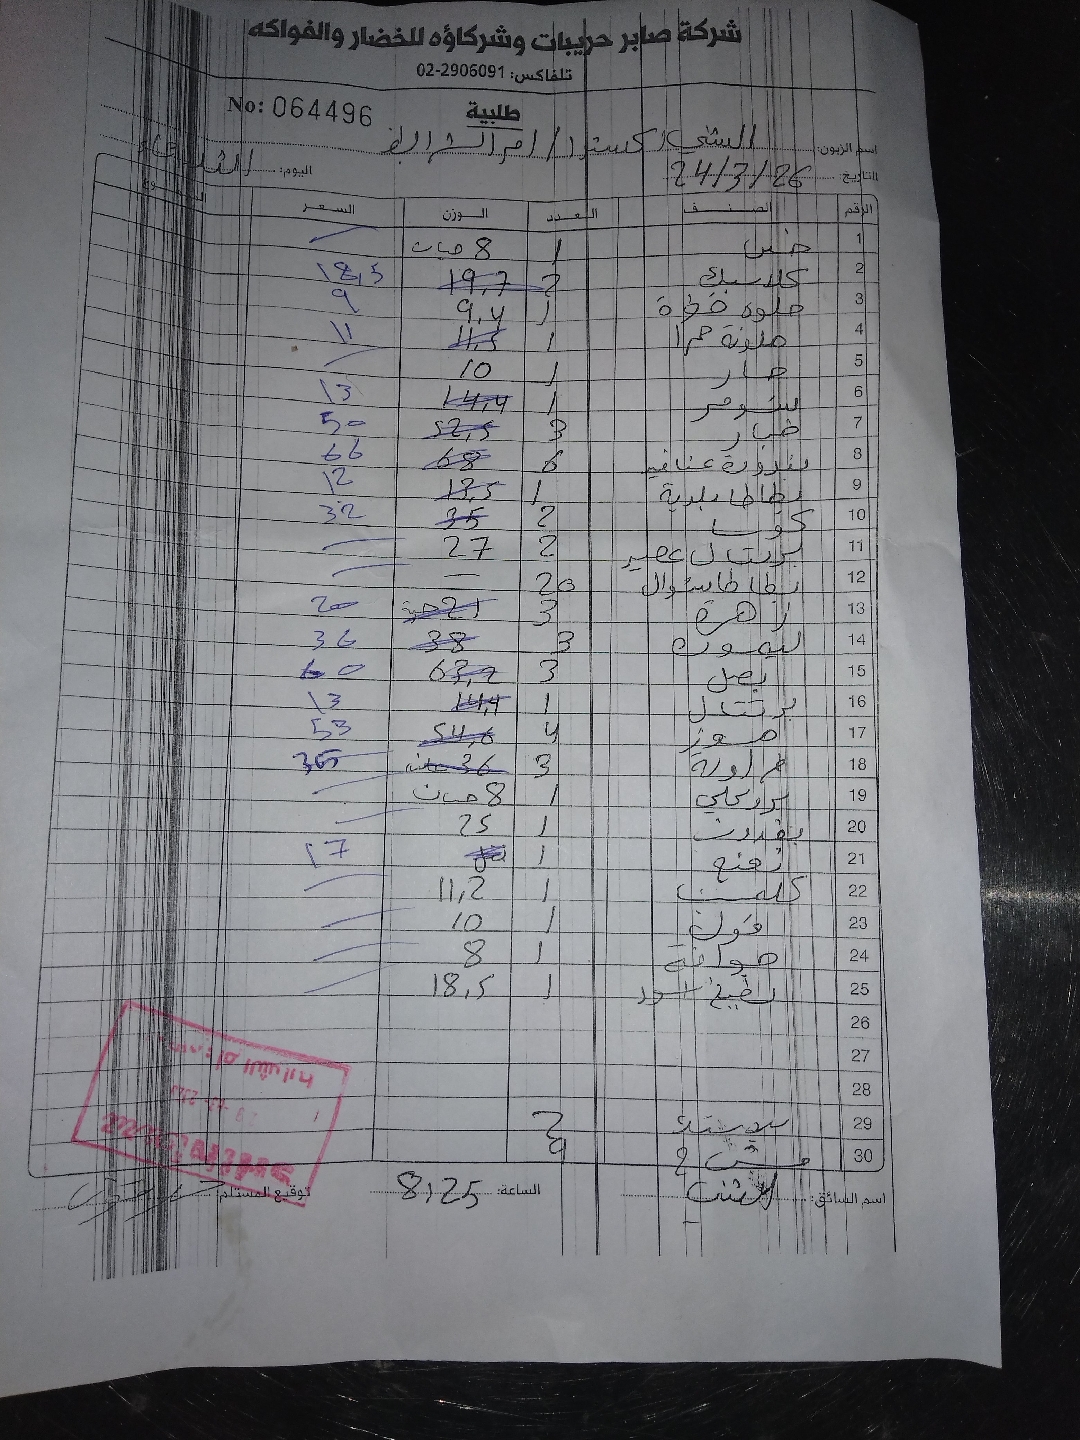 شركة صابر حريبات وشركاؤه للخضار والفواكه
تلفاكس: 02-2906091
No: 064496
طلبية
اسم الزبون: الشني اكسترا / ام الشرايط
التاريخ: 24/3/26 اليوم: الثلاثاء
الرقم الصنف العدد الوزن السعر
1 خس 1 8 حبات
2 كلاسيك 2 19,7 18,5
3 حلوه خضرة 1 9,4 9
4 ملونة حمرا 1 11,5 11
5 حار 1 10
6 1 14,4 13
7 خيار 3 52,5 50
8 بندورة عناقيد 6 68 66
9 بطاطا بلدية 1 13,5 12
10 كوسا 2 35 32
11 برتقال عصير 2 27
12 بطاطا شوال 20 –
13 زهرة 3 21 حبة 20
14 ليمون 3 38 36
15 بصل 3 63,2 60
16 برتقال 1 14,4 13
17 موز 4 54,6 53
18 3 36 35
19 بروكلي 1 8 حبات
20 بقدونس 1 25
21 نعنع 1 17
22 كلمنت 1 11,2
23 1 10
24 جوافة 1 8
25 بطيخ اسود 1 18,5
26
27
28
29
30
اسم السائق: الساعة: 8:25 توقيع المستلم: